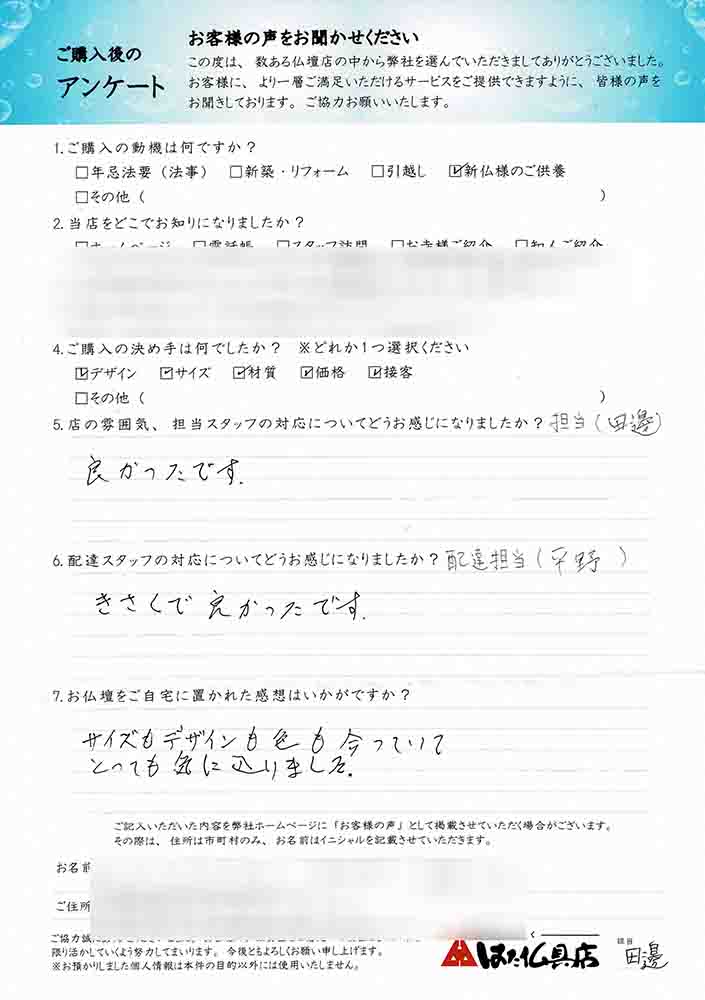 ご購入後の
アンケート
お客様の声をお聞かせください
この度は、数ある仏壇店の中から弊社を選んでいただきましてありがとうございました。
お客様に、より一層ご満足いただけるサービスをご提供できますように、皆様の声を
お聞きしております。ご協力お願いいたします。
1.ご購入の動機は何ですか？
□年忌法要（法事） □新築・リフォーム □引越し ☑新仏様のご供養
□その他（ ）
2.当店をどこでお知りになりましたか？
□ホームページ □電話帳 □スタッフ訪問 □お寺様ご紹介 □知人ご紹介
4.ご購入の決め手は何でしたか？ ※どれか1つ選択ください
☑デザイン ☑サイズ ☑材質 ☑価格 ☑接客
□その他（ ）
5.店の雰囲気、担当スタッフの対応についてどうお感じになりましたか？ 担当（田邊）
良かったです.
6.配達スタッフの対応についてどうお感じになりましたか？ 配達担当（平野）
きさくで良かったです.
7.お仏壇をご自宅に置かれた感想はいかがですか？
サイズもデザインも色も合っていて
とっても気に込りました.
ご記入いただいた内容を弊社ホームページに「お客様の声」として掲載させていただく場合がございます。
その際は、住所は市町村のみ、お名前はイニシャルを記載させていただきます。
お名前
ご住所
ご協力誠に
限り活かしていくよう努力してまいります。今後ともよろしくお願い申し上げます。
※お預かりしました個人情報は本件の目的以外には使用いたしません。
はた仏具店
担当 田邊